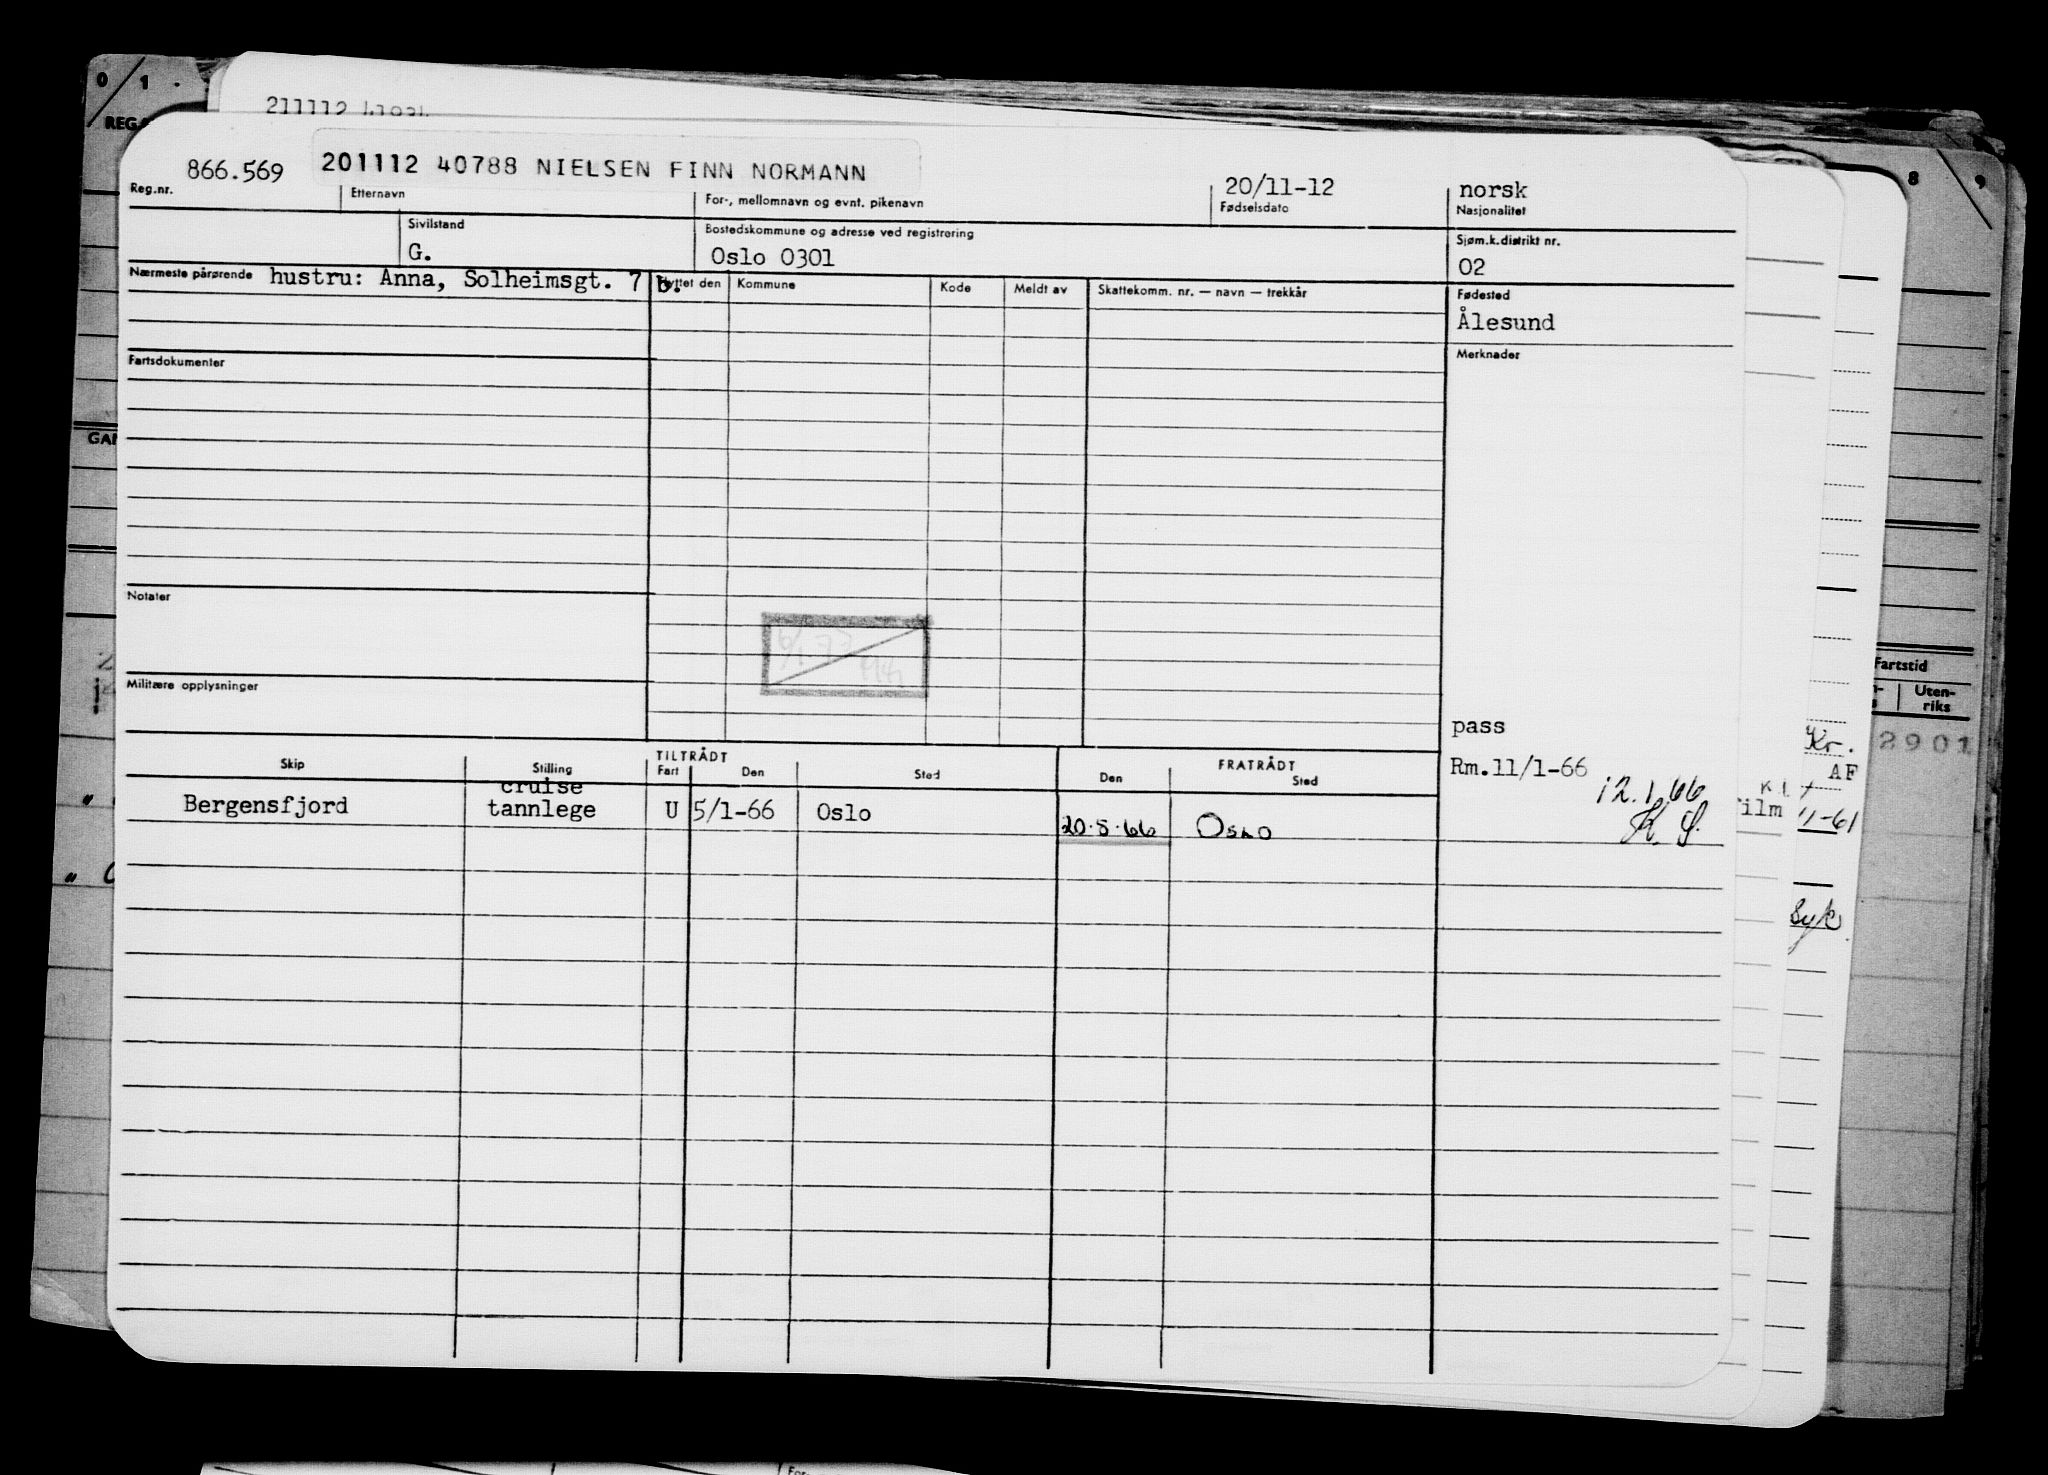 0 1
REG
211112
866.569 201112 40788 NIELSEN FINN NORMANN 20/11-12 norsk
Reg.nr. Etternavn For-, mellomnavn og evnt. pikenavn Fødselsdato Nasjonalitet
8 9
Sivilstand Bostedskommune og adresse ved registrering Sjøm.k.distrikt nr.
G. Oslo 0301 02
Nærmeste pårørende hustru: Anna, Solheimsgt. 7 b. Flyttet den Kommune Kode Meldt av Skattekomm. nr. — navn — trekkår Fødested
Ålesund
Fartsdokumenter Merknader
GAN
Notater
Militære opplysninger
Fartstid
Uten-
riks
pass
Kr. 2901
TILTRÅDT FRATRÅDT
Skip Stilling Fart Den Sted Den Sted
Rm.11/1-66
12.1.66
K.S.
AF
film
11-61
cruise
Bergensfjord tannlege U 5/1-66 Oslo 20.5.66 Oslo
Syk
For-,